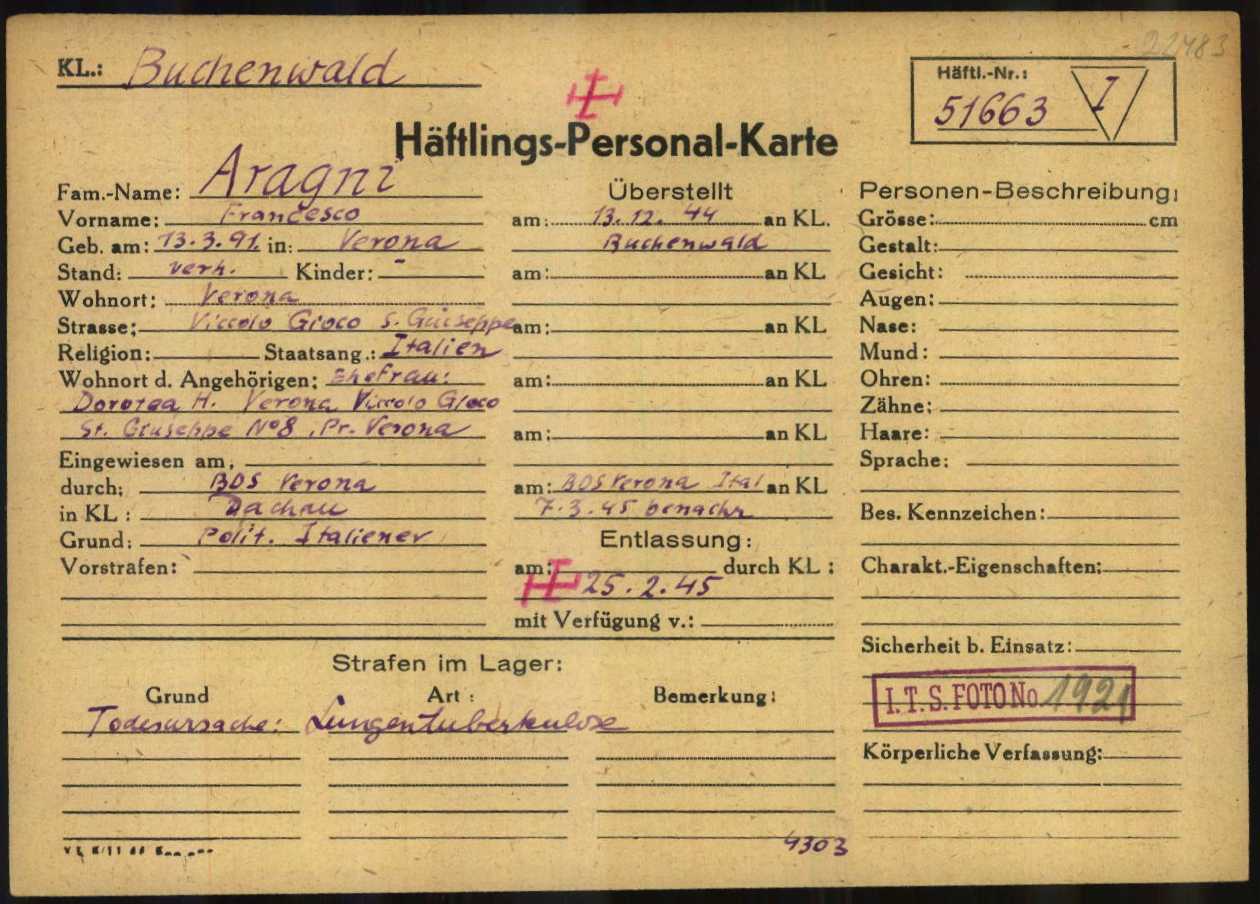 22483
KL.: Buchenwald
Häftl.-Nr.:
51663 I
Häftlings-Personal-Karte
Fam.-Name: Aragni
Vorname: Francesco
Geb. am: 13.3.91. in: Verona
Stand: verh. Kinder: -
Wohnort: Verona
Strasse: Viccolo Gioco S. Guiseppe
Religion: Staatsang.: Italien
Wohnort d. Angehörigen: Ehefrau:
Dorotea H. Verona Viccolo Gioco
St. Giuseppe No 8, Pr. Verona
Eingewiesen am,
durch: BDS Verona
in KL : Dachau
Grund: Polit. Italiener
Vorstrafen:
Überstellt
am: 13.12. 44 an KL.
Buchenwald
am: an KL
am: an KL
am: an KL
am: an KL
am: BDS Verona Ital an KL
7.3.45 benachr
Entlassung:
am: durch KL :
25.2.45
mit Verfügung v.:
Personen-Beschreibung:
Grösse: cm
Gestalt:
Gesicht:
Augen:
Nase:
Mund:
Ohren:
Zähne:
Haare:
Sprache:
Bes. Kennzeichen:
Charakt.-Eigenschaften:
Sicherheit b. Einsatz:
I.T.S. FOTO No 1921
Körperliche Verfassung:
Strafen im Lager:
Grund Art : Bemerkung:
Todesursache: Lungentuberkulose
4303